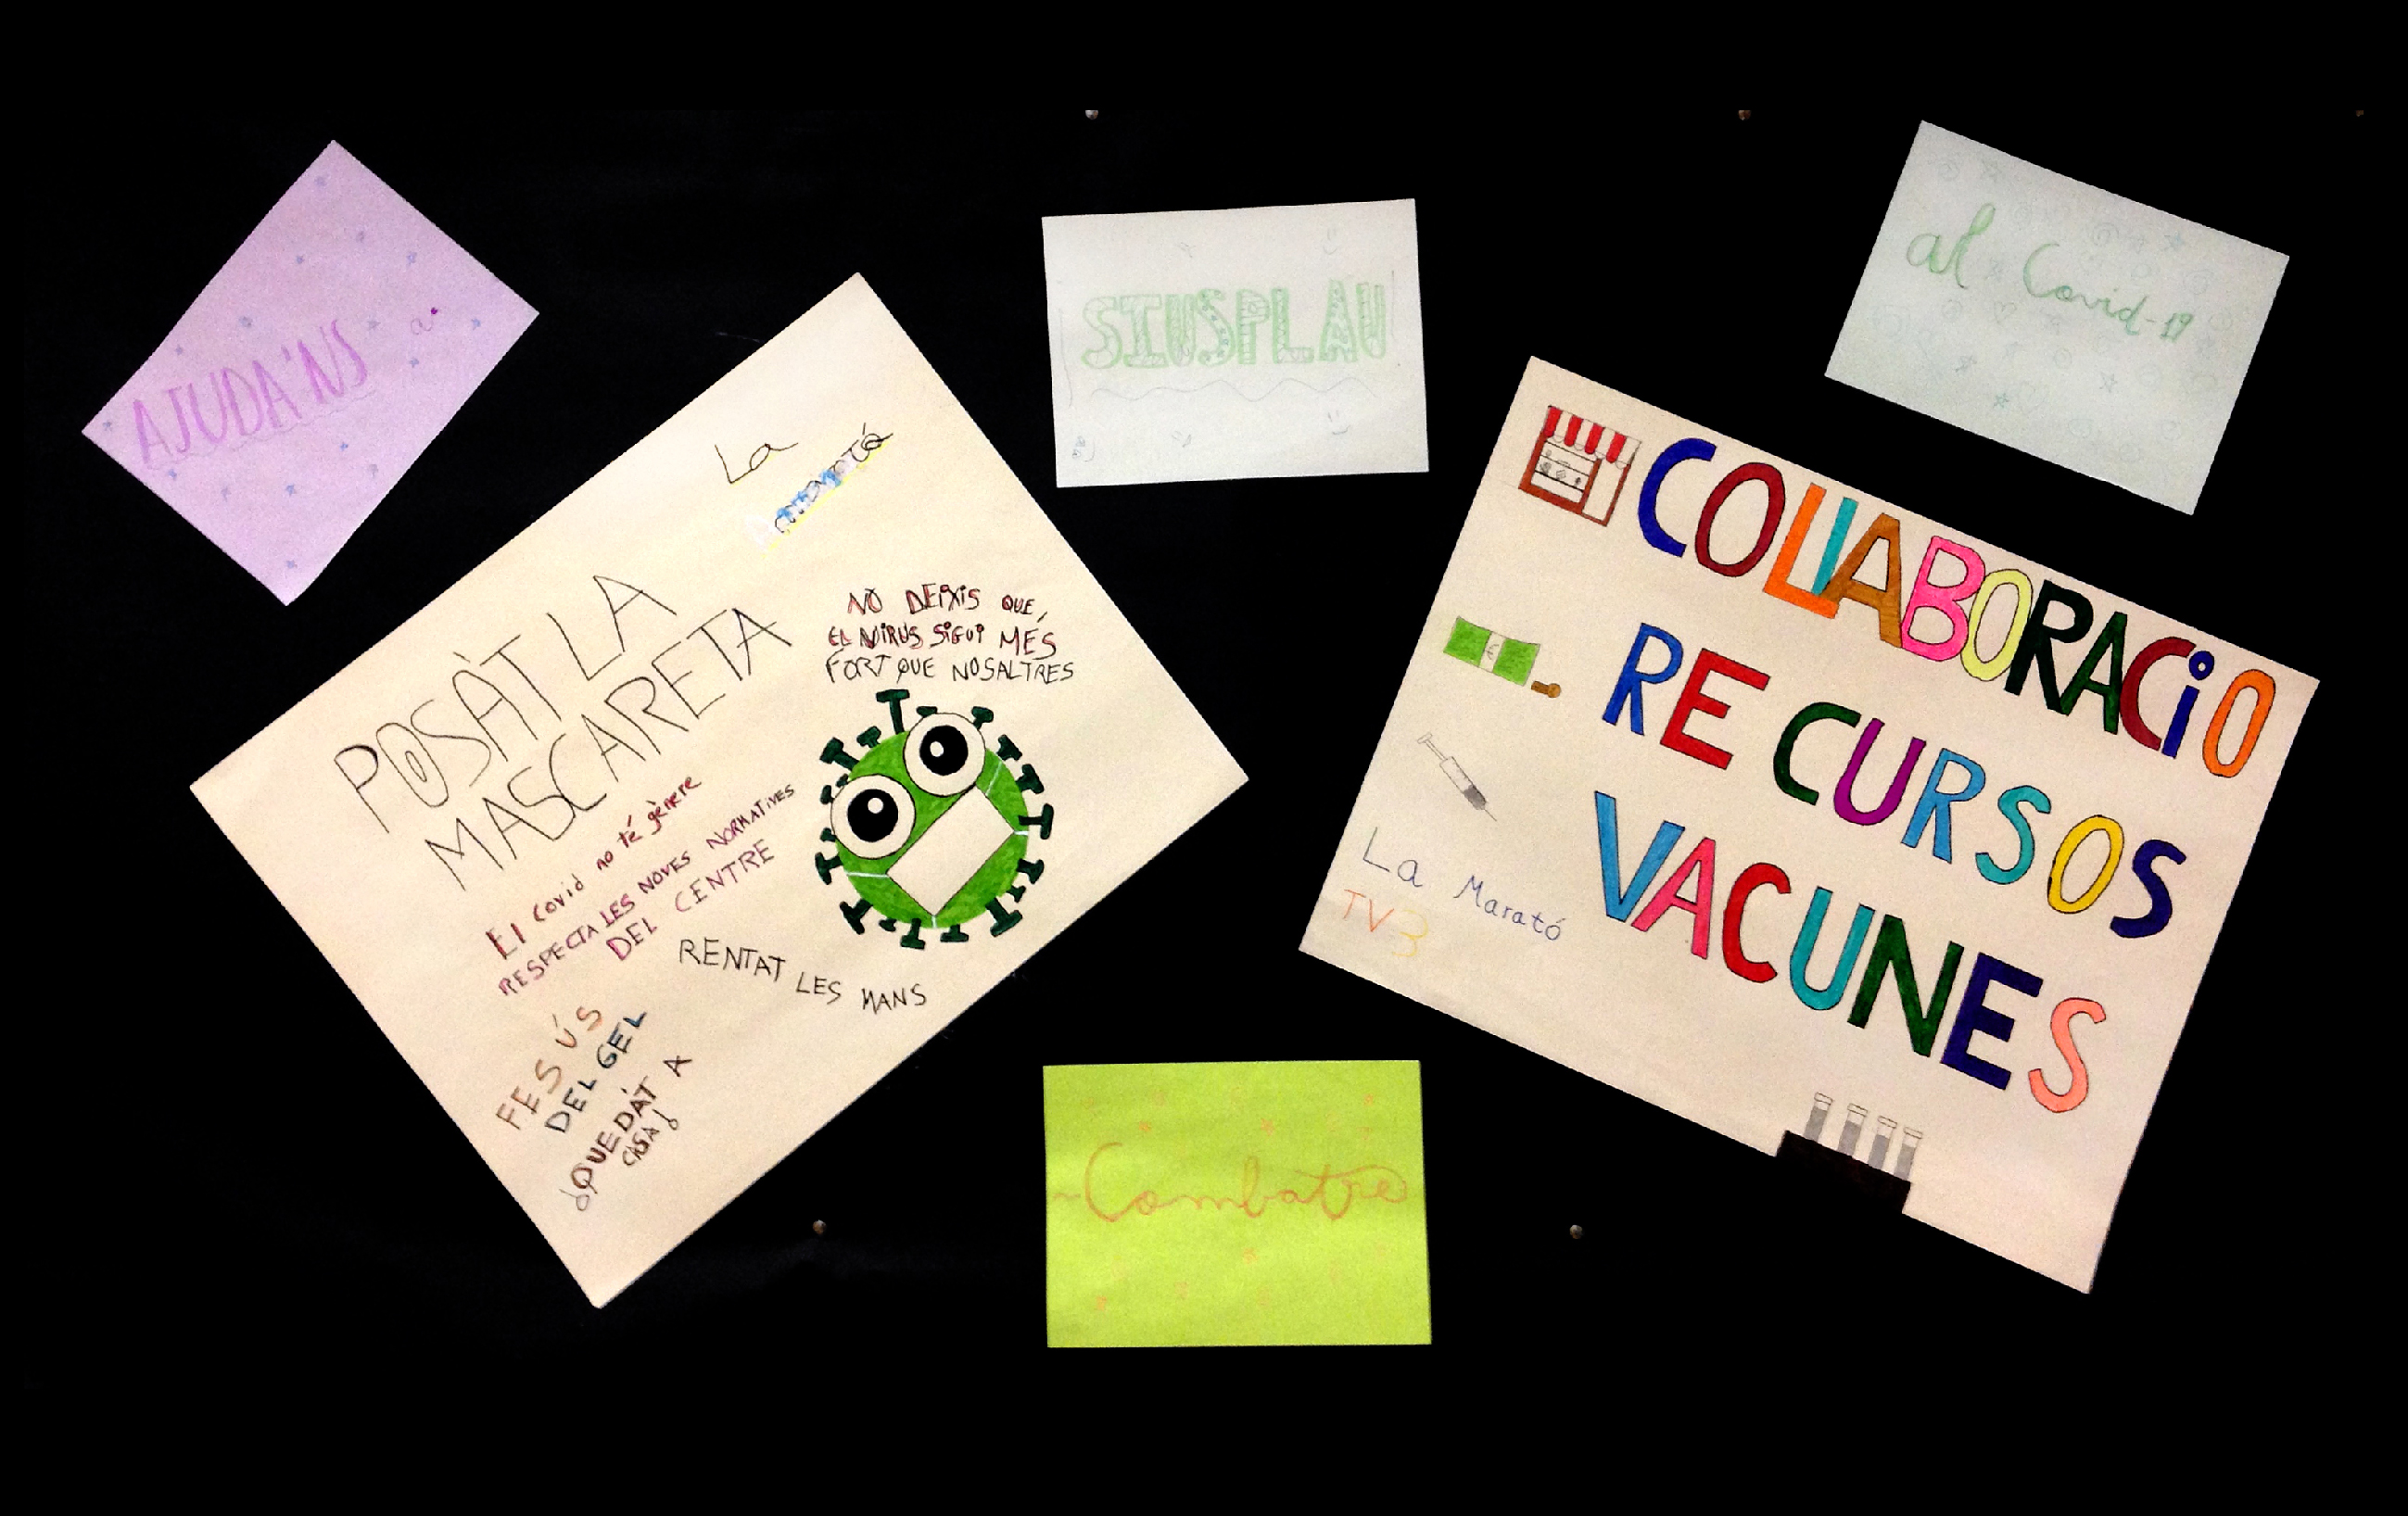 AJUDA'NS a.
SIUSPLAU
al Covid-19
La
POSÀT LA
MASCARETA
NO DEIXIS QUE
EL VIRUS SIGUI MÉS
FORT QUE NOSALTRES
El Covid no té gènere
RESPECTA LES NOVES NORMATIVES
DEL CENTRE
RENTAT LES MANS
FES ÚS
DEL GEL
¡QUEDÀT A
CASA!
COLLABORACIO
RECURSOS
VACUNES
La Marató
TV3
€
~Combatre